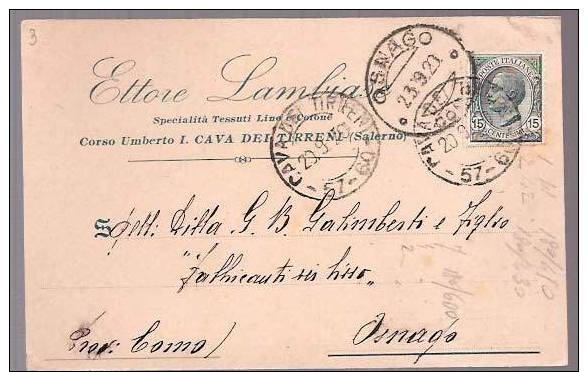 3
Ettore Lambiase
Specialità Tessuti Lino e Cotone
Corso Umberto I. CAVA DEI TIRRENI (Salerno)
OSNAGO
23.9.20
CAVA DEI TIRRENI
20.9
57-60
CAVA DEI
20.9
57-60
POSTE ITALIANE
15 CENTESIMI 15
Spett: Ditta G. B. Galimberti e Figlio
Osnago
Prov: Como